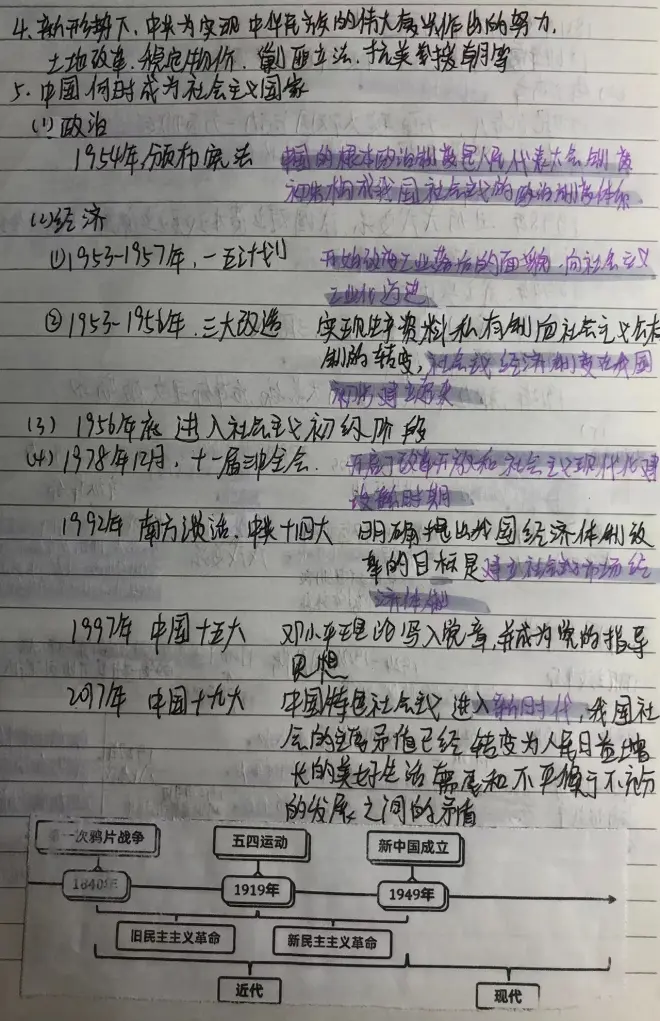 4.新形势下,中共为实现中华民族的伟大复兴作出的努力.
土地改革.稳定物价.制定立法.抗美援朝等
5.中国何时成为社会主义国家
(1)政治
1954年,颁布宪法 中国的根本政治制度是人民代表大会制度
初步构成我国社会主义的政治制度体系
(2)经济
①1953-1957年.一五计划 开始改变工业落后的面貌.向社会主义
工业化迈进
②1953-1956年.三大改造 实现生产资料私有制向社会主义公有
制的转变,社会主义经济制度在我国
初步建立起来
(3)1956年底 进入社会主义初级阶段
(4)1978年12月.十一届三中全会. 开启了改革开放和社会主义现代化建
设新时期
1992年 南方谈话.中共十四大 明确提出我国经济体制改
革的目标是建立社会主义市场经
济体制
1997年 中国十五大 邓小平理论写入党章,并成为党的指导
思想
2017年 中国十九大 中国特色社会主义进入新时代,我国社
会的主要矛盾已经转变为人民日益增
长的美好生活需要和不平衡不充分
的发展之间的矛盾
第一次鸦片战争 五四运动 新中国成立
1840年 1919年 1949年
旧民主主义革命 新民主主义革命
近代 现代